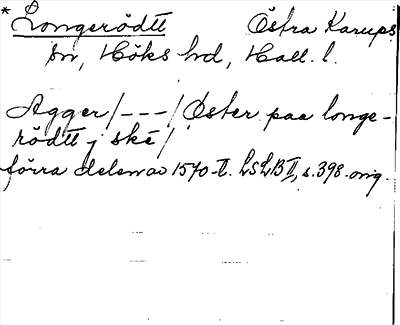 * Longerödtt Östra Karups
sn, Höks hd, Hall. l.
Agger /---/ Öster paa longe-
rödtt j ske /
förra delen av 1570-t. LSLB II, s. 398. orig.